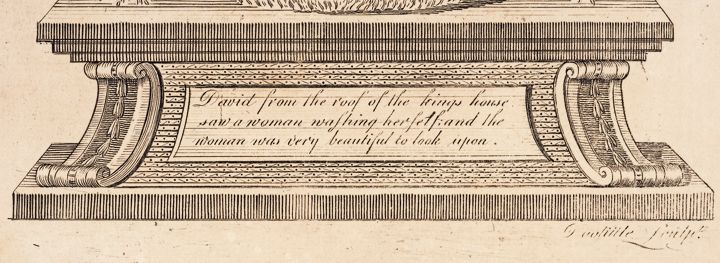 David from the roof of the kings house
saw a woman waſhing herſelf: and the
woman was very beautiful to look upon.
Doolittle Sculpt.